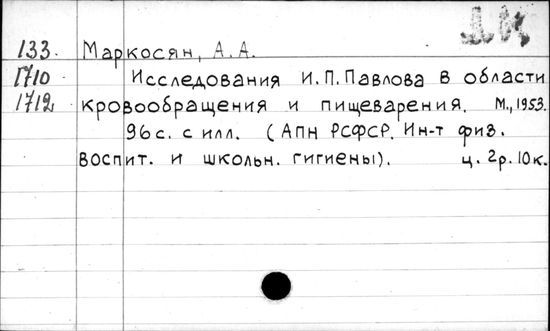 133. Маркосян, А.А.
1710 Исследования И.П.Павлова в области
1712 кровообращения и пищеварения. М., 1953.
96с. с илл. (АПН РСФСР. Ин-т физ.
воспит. и школьн. гигиены). ц. 2р. 10к.